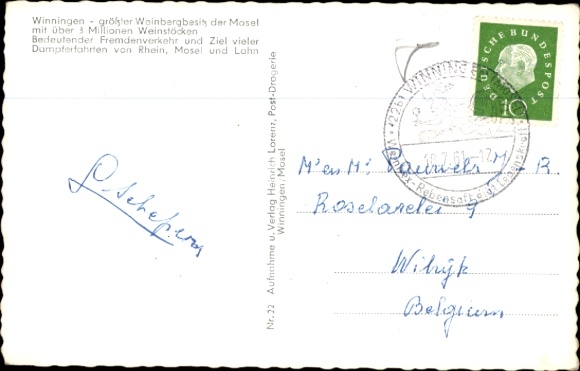 Winningen - größter Weinbergbesitz der Mosel
mit über 3 Millionen Weinstöcken
Bedeutender Fremdenverkehr und Ziel vieler
Dampferfahrten von Rhein, Mosel und Lahn
DEUTSCHE BUNDESPOST
10
(22b) WINNINGEN
Nr. 22 Aufnahme u. Verlag Heinrich Lorenz, Post-Drogerie
Winningen/Mosel
M' en Mr
Roselarelei 9
Wilrijk
Belgium